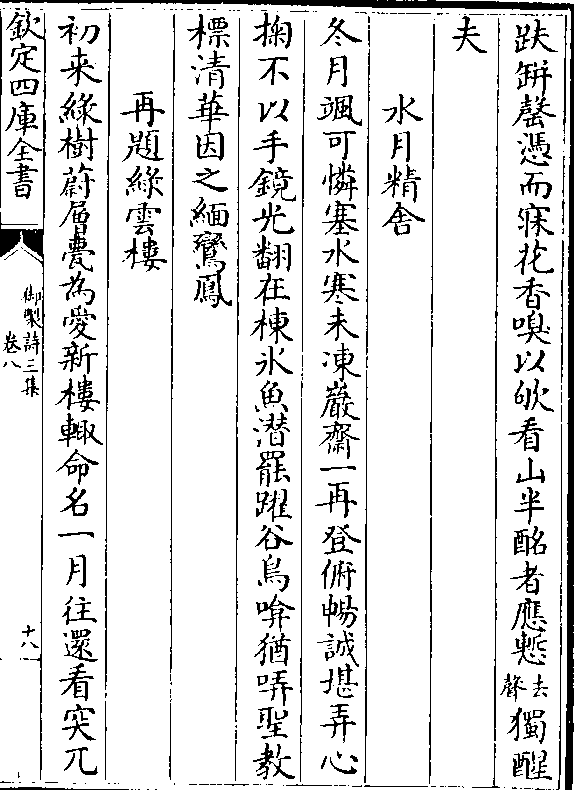 趺缾罄憑而寐花香嗅以欨看山半酩者應慙去聲獨醒
夫
水月精舍
冬月颯可憐塞水寒未凍巖齋一再登俯暢誠堪弄心
掬不以手鏡光翻在棟氷魚潛罷躍谷鳥喑猶哢聖教
標清華因之緬鸞鳳
再題綠雲樓
初来綠樹蔚層甍為愛新樓輙命名一月往還看突兀
欽定四庫全書
御製詩三集
卷八
十八